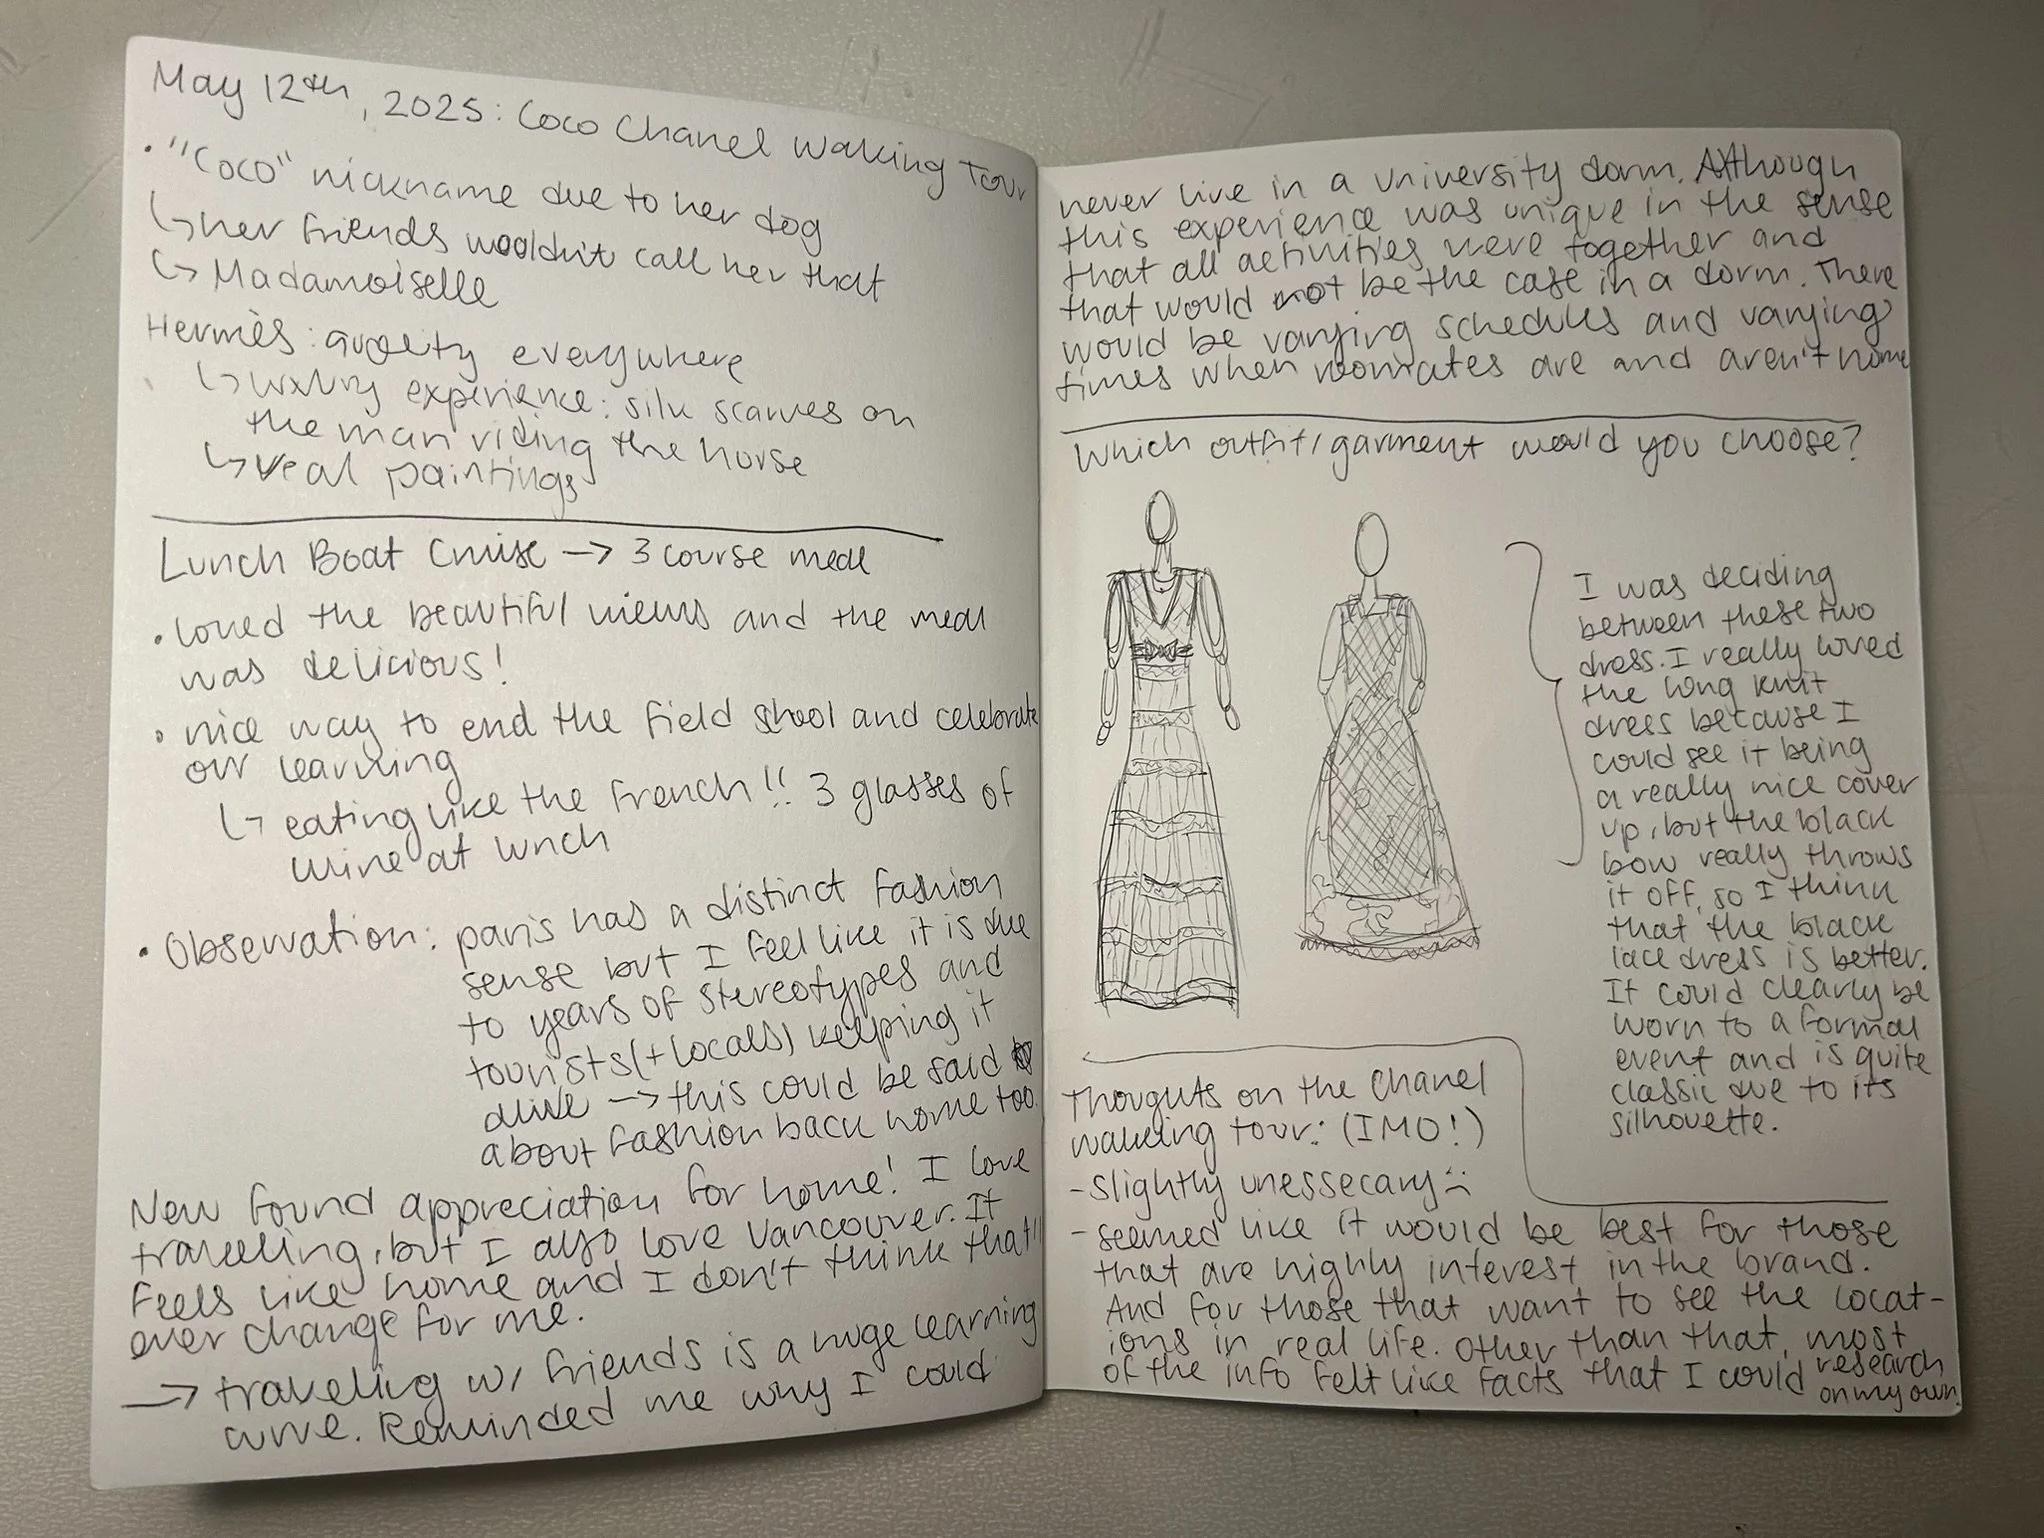 May 12th, 2025: Coco Chanel Walking Tour
• "Coco" nickname due to her dog
↳ her friends wouldn't call her that
↳ Madamoiselle
Hermès: quality everywhere
↳ luxury experience: silk scarves on
the man riding the horse
↳ real paintings
Lunch Boat Cruise → 3 course meal
• loved the beautiful views and the meal
was delicious!
• nice way to end the field shool and celebrate
our learning
↳ eating like the French!! 3 glasses of
wine at lunch
• Observation: paris has a distinct fashion
sense but I feel like it is due
to years of stereotypes and
tourists (+locals) keeping it
alive → this could be said
about fashion back home too.
New found appreciation for home! I love
travelling, but I also love Vancouver. It
feels like home and I don't think that'll
ever change for me.
→ traveling w/ friends is a huge learning
curve. Reminded me why I could
never live in a university dorm. Although
this experience was unique in the sense
that all activities were together and
that would not be the case in a dorm. There
would be varying schedules and varying
times when roomates are and aren't home
Which outfit/garment would you choose?
I was deciding
between these two
dress. I really loved
the long knit
dress because I
could see it being
a really nice cover
up, but the black
bow really throws
it off, so I think
that the black
lace dress is better.
It could clearly be
worn to a formal
event and is quite
classic due to its
silhouette.
Thoughts on the Chanel
walking tour: (IMO!)
- Slightly unessecary :(
- seemed like it would be best for those
that are highly interest in the brand.
And for those that want to see the locat-
ions in real life. Other than that, most
of the info felt like facts that I could research
on my own.